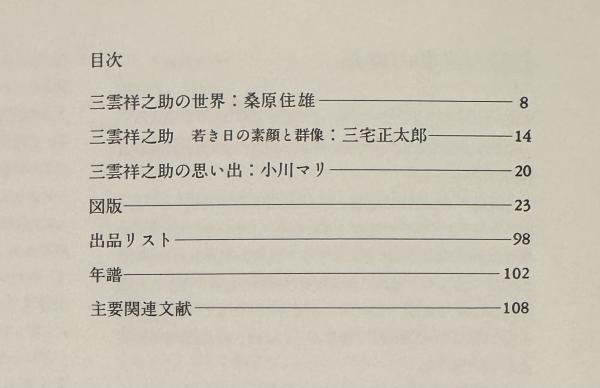 目次
三雲祥之助の世界：桑原住雄 8
三雲祥之助　若き日の素顔と群像：三宅正太郎 14
三雲祥之助の思い出：小川マリ 20
図版 23
出品リスト 98
年譜 102
主要関連文献 108